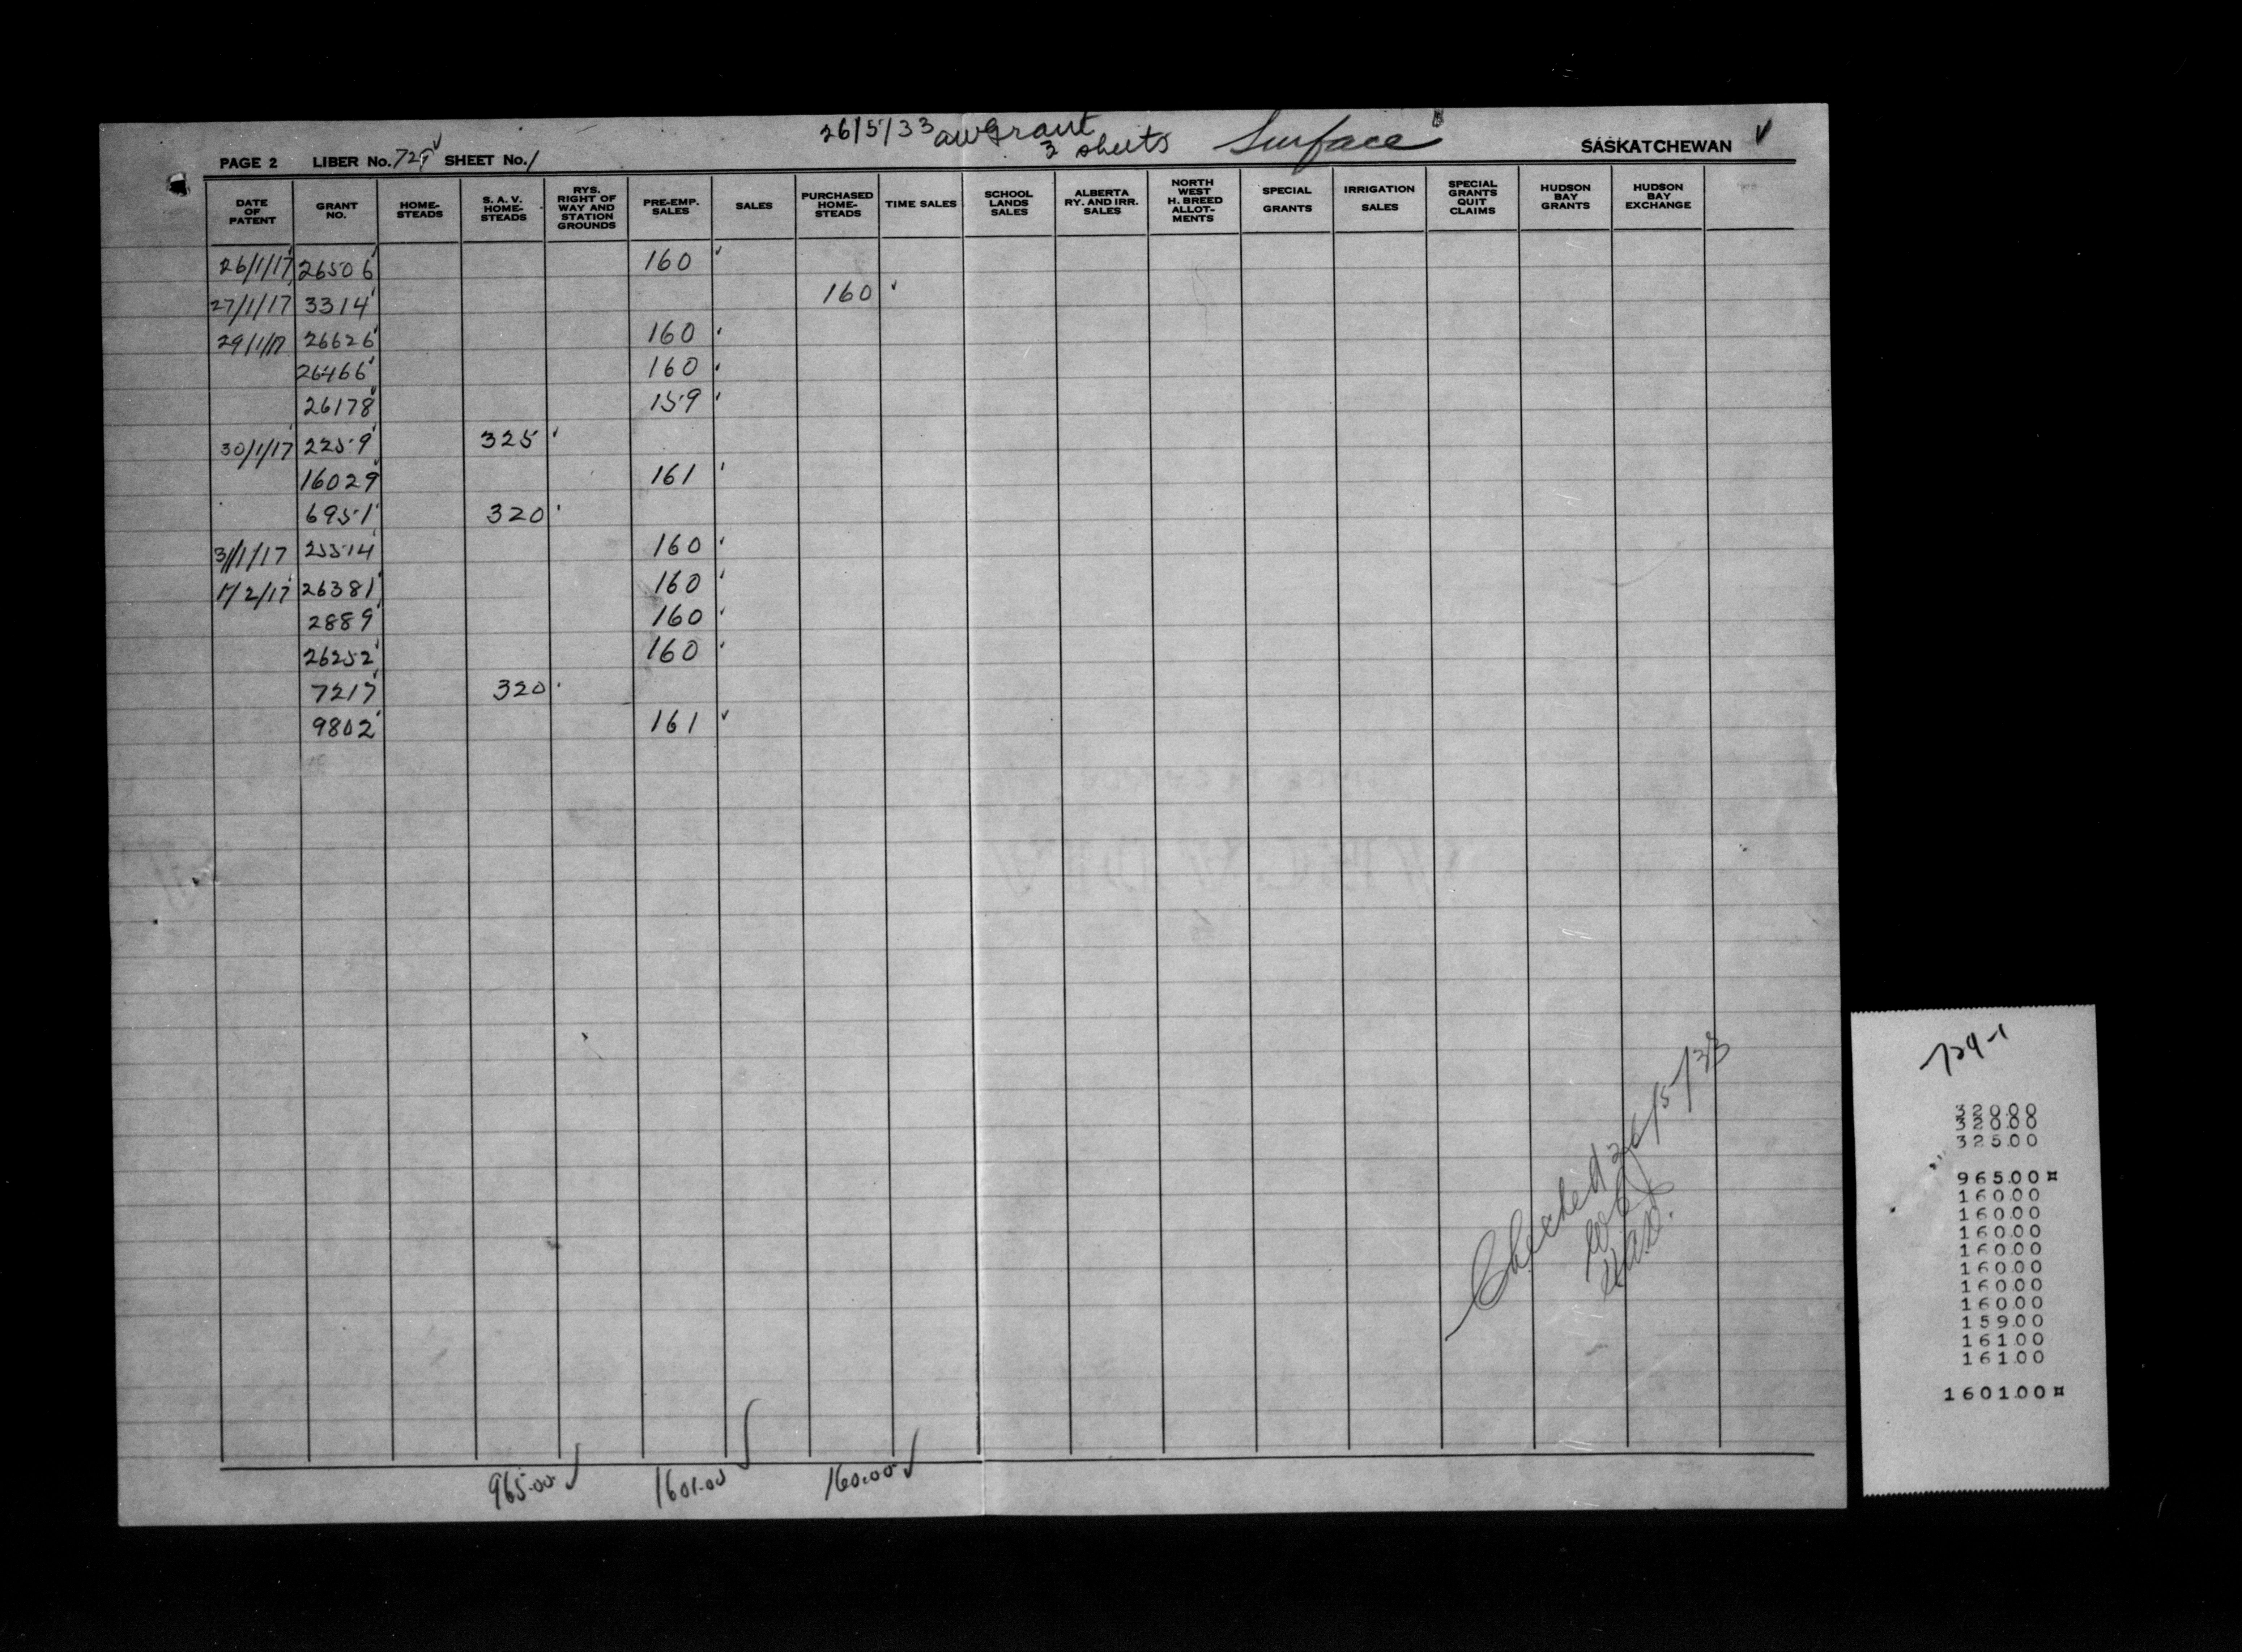 26/5/33 awGrant
3 sheets Surface
PAGE 2 LIBER No. 729 SHEET No. 1 SASKATCHEWAN
DATE OF PATENT GRANT NO. HOME-STEADS S. A. V. HOME-STEADS RYS. RIGHT OF WAY AND STATION GROUNDS PRE-EMP. SALES SALES PURCHASED HOME-STEADS TIME SALES SCHOOL LANDS SALES ALBERTA RY. AND IRR. SALES NORTH WEST H. BREED ALLOT-MENTS SPECIAL GRANTS IRRIGATION SALES SPECIAL GRANTS QUIT CLAIMS HUDSON BAY GRANTS HUDSON BAY EXCHANGE
26/1/17 26506 160
27/1/17 3314 160
29/1/17 26626 160
26466 160
26178 159
30/1/17 2259 325
16029 161
6951 320
31/1/17 25514 160
1/2/17 26381 160
2889 160
26252 160
7217 320
9802 161
Checked 26/5/33
965.00 1601.00 160.00
729-1
320.00
320.00
325.00
965.00¤
160.00
160.00
160.00
160.00
160.00
160.00
160.00
159.00
161.00
161.00
1601.00¤